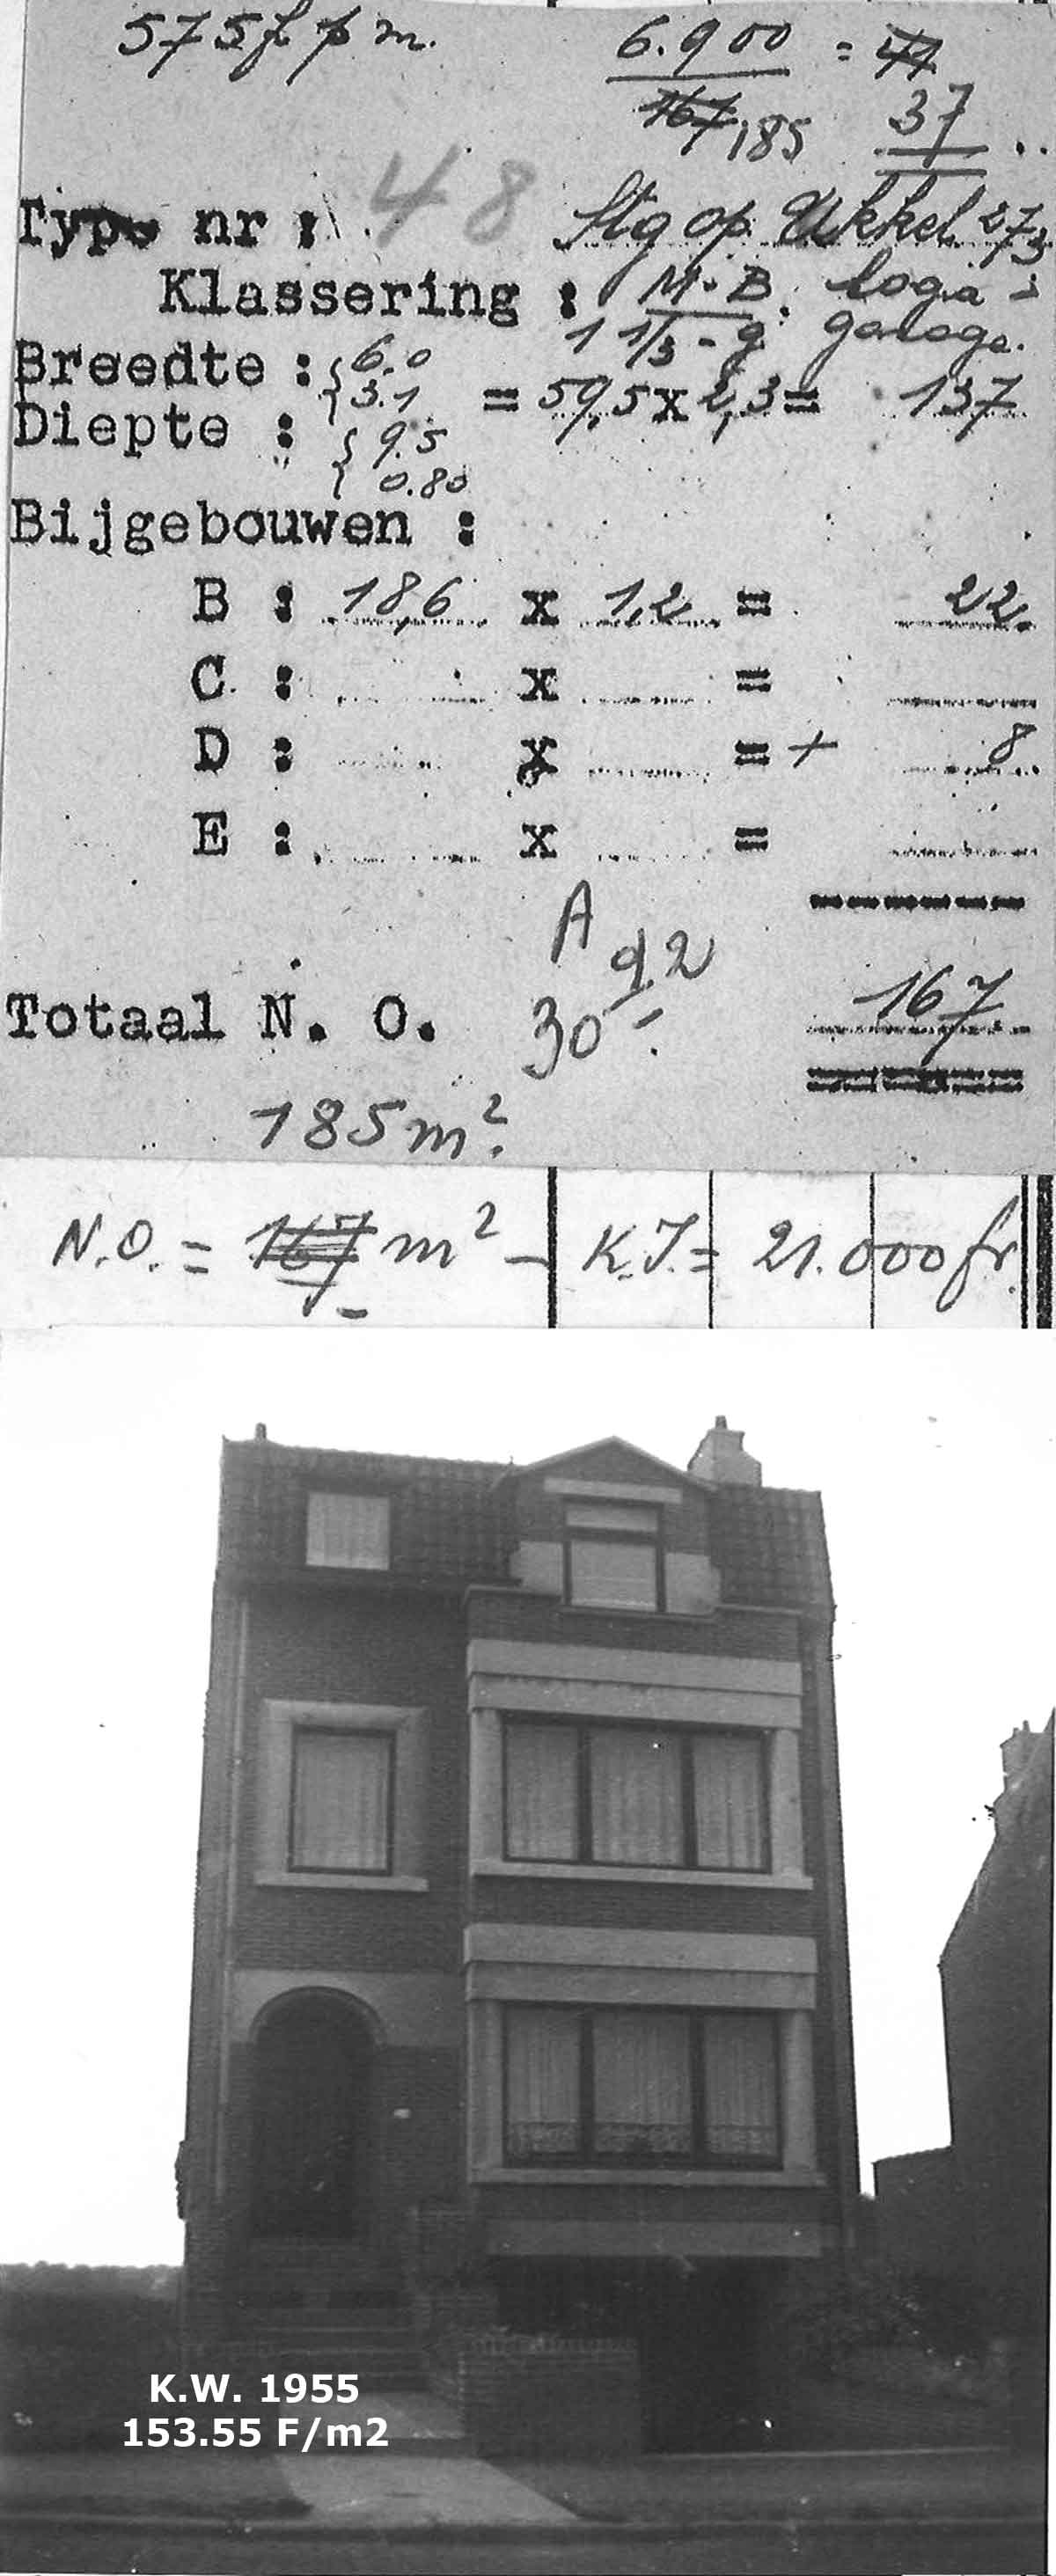 575 f p m. 6.900 = 41
167 185 37
Type nr : 48 Stg op Ukkel 273
Klassering : M.B. logia -
1 1/3 - g garage.
Breedte : { 6.0
3.1 = 59,5 x 2,3 = 137
Diepte : { 9.5
0.80
Bijgebouwen :
B : 18,6 x 1,2 = 22.
C : x =
D : x = + 8
E : x =
A
92
Totaal N. O. 30 167
185 m².
N.O. = 167 m² - K.I. = 21.000 fr.
K.W. 1955
153.55 F/m2